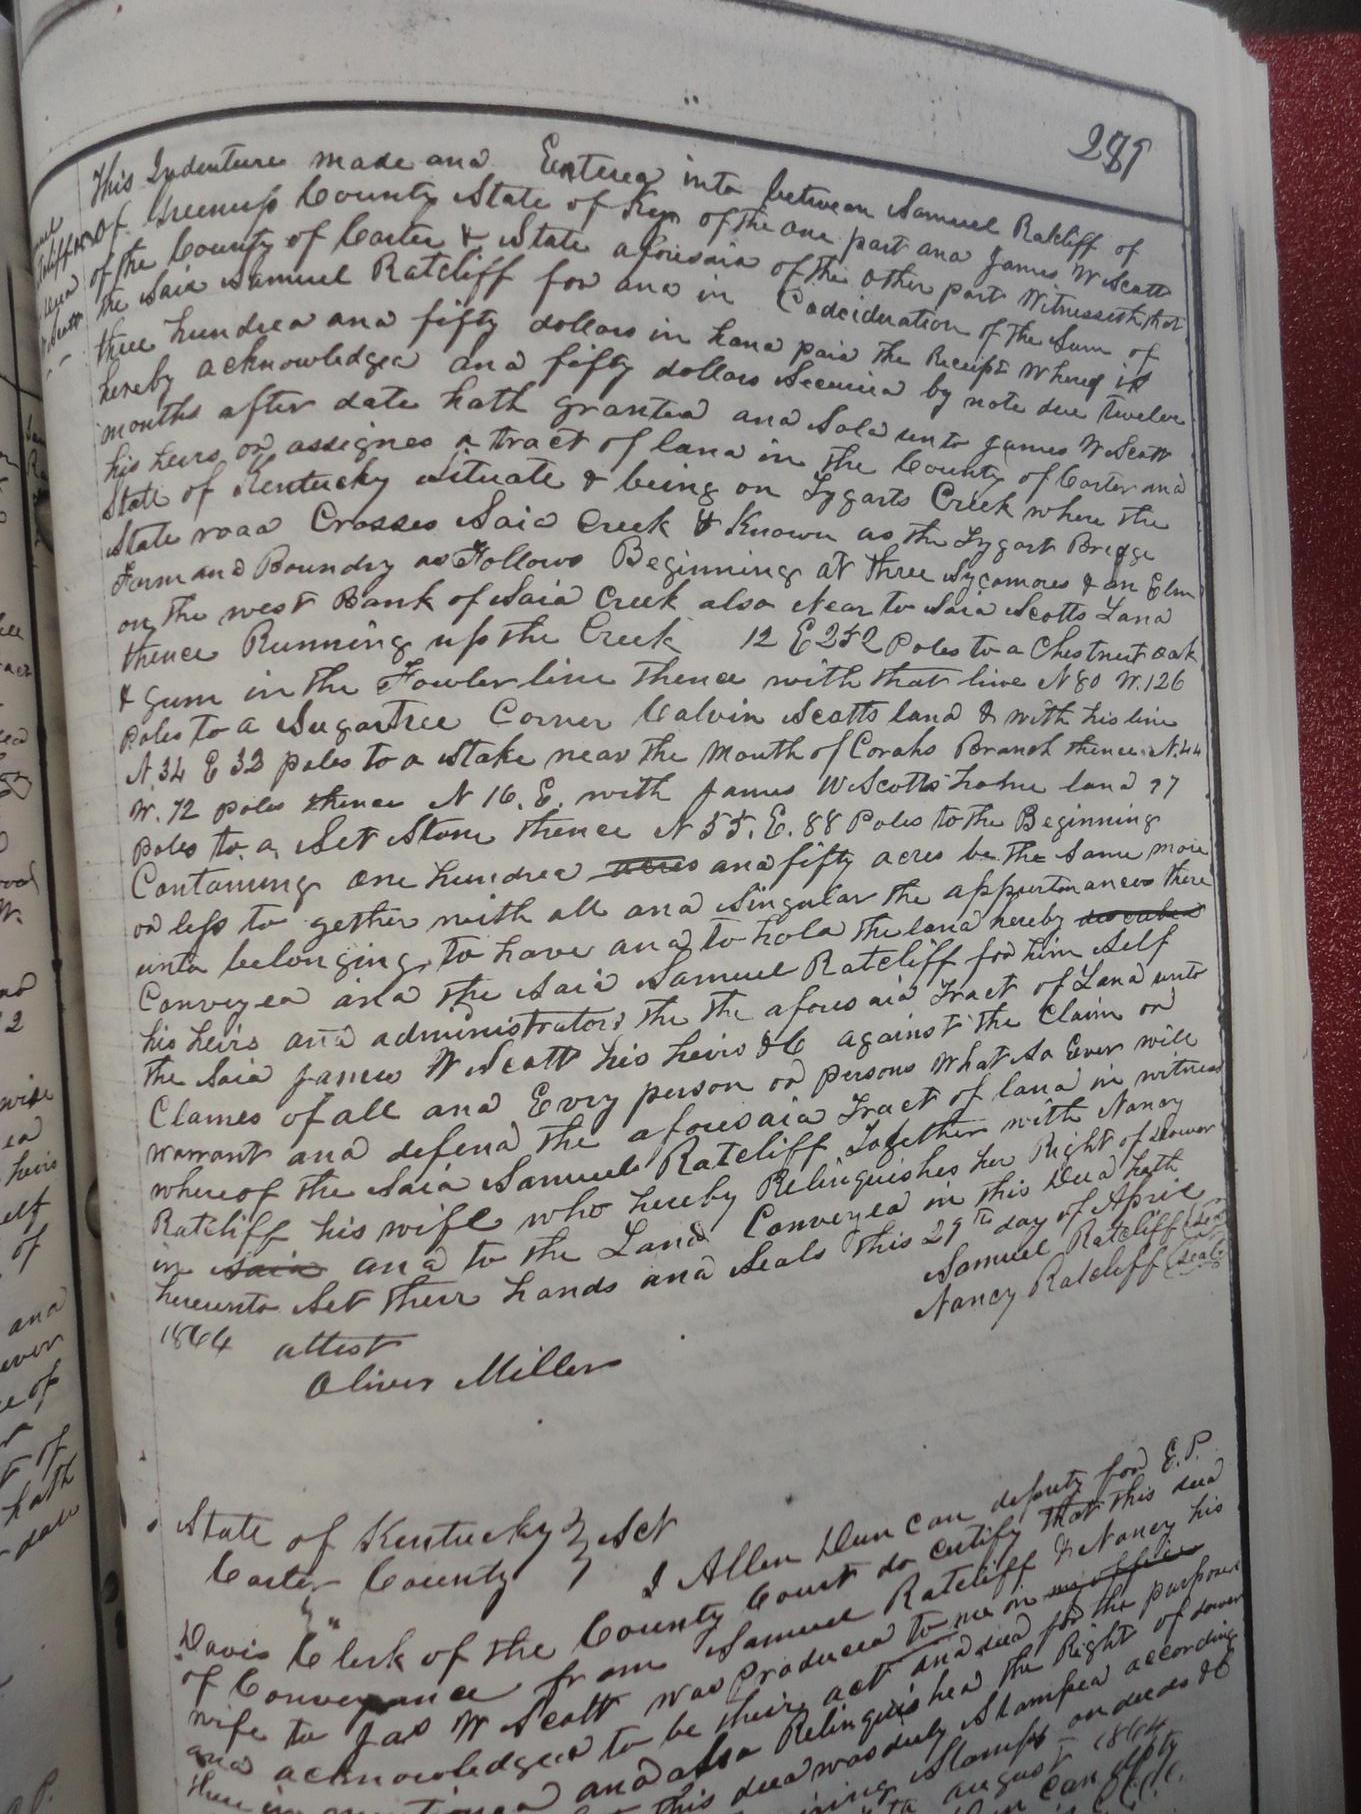 289
This Indenture made and Entered into between Samuel Ratcliff of
of Greenup County State of Ky. of the one part and James W Scott
of the County of Carter & State aforesaid of the other part Witnesseth that
the Said Samuel Ratcliff for and in Cadcideration of the Sum of
three hundred and fifty dollars in hand paid the Receipt Whereof is
hereby acknowledged and fifty dollars Secured by note due twelve
months after date hath granted and Sold unto James W Scott
his heirs or assignes a tract of land in the County of Carter and
State of Kentucky Situate & being on Tygarts Creek where the
State road Crosses Said Creek & Known as the Tygart Bredge
Farm and Boundry as Follows Beginning at three Sycamores & an Elm
on the west Bank of Said Creek also Near to Said Scotts Land
thence Running up the Creek 12 E 252 Poles to a Chestnut oak
& gum in the Fowler line thence with that line N 80 W. 126
poles to a Sugartree Corner Calvin Scotts land & with his line
N 34 E 32 poles to a Stake near the Mouth of Corahs Branch thence N. 44
W. 72 poles thence N 16. E. with James W Scotts home land 77
poles to a Set Stone thence N 55. E. 88 Poles to the Beginning
Contaning one hundred acres and fifty acres be the Same more
or less to gether with all and Singular the appurtenances there
unto belonging, to have and to hold the land hereby described
Conveyed and the Said Samuel Ratcliff for him Self
his heirs and administrators the the aforesaid tract of Land unto
the Said James W Scott his heirs &C against the Claim or
Clames of all and Evry person or persons What So Ever will
warrant and defend the aforesaid Tract of land in witness
whereof the Said Samuel Ratcliff Together with Nancy
Ratcliff his wife who hereby Relinquishes her Right of Dower
in Said and to the Land Conveyed in this Deed hath
hereunto Set their hands and Seals this 29th day of April
1864
Samuel Ratcliff (Seal)
Nancy Ratcliff (Seal)
attest
Oliver Miller
State of Kentucky } Sct
Carter County }
I Allen Duncan deputy for E. P.
Davis Clerk of the County Court do certify that this deed
of Conveyance from Samuel Ratcliff & Nancy his
wife to Jas W Scott was Produced to me in my office
and acknowledged to be their act and deed for the purposes
there in mentioned and also Relinquished the Right of dower
this deed was duly Stamped according
Stamps on deeds &C
august 1864